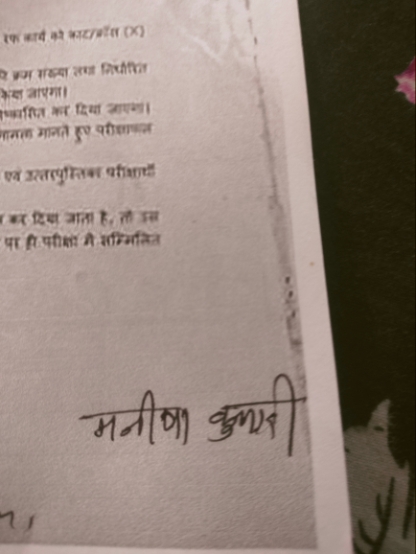 रफ कार्य को काट/क्रॉस (X)
क्रम संख्या तथा निर्धारित
किया जाएगा।
निष्कासित कर दिया जाएगा।
मानते हुए परीक्षाफल
एवं उत्तरपुस्तिका परीक्षार्थी
कर दिया जाता है, तो उस
पर ही परीक्षा में सम्मिलित
मनीषा कुमारी